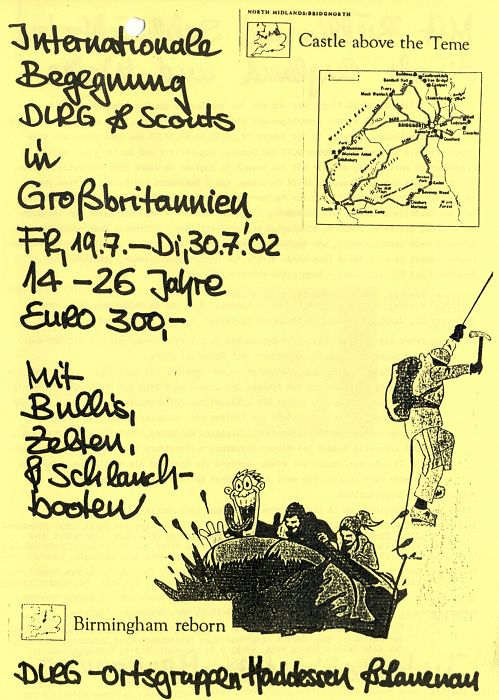 NORTH MIDLANDS:BRIDGNORTH
Castle above the Teme
Internationale
Begegnung
DLRG & Scouts
in
Großbritannien
FR, 19.7.–Di, 30.7.'02
14 – 26 Jahre
EURO 300,-
Mit
Bullis,
Zelten,
& Schlauch-
booten
Birmingham reborn
DLRG-Ortsgruppen Haddessen & Lauenau